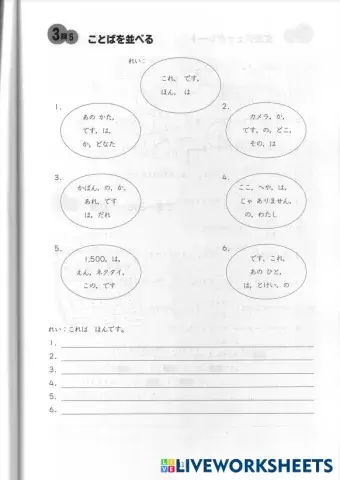 3課5 ことばを並べる
れい：
これ、です、
ほん、は
1.
あの かた、
です、は、
か、どなた
2.
カメラ、か、
です、の、どこ、
その、は
3.
かばん、の、か、
あれ、です
は、だれ
4.
ここ、へや、は、
じゃ ありません、
の、わたし
5.
1,500、は、
えん、ネクタイ、
この、です
6.
です、これ、
あの ひと、
は、とけい、の
れい：これは ほんです。
1.
2.
3.
4.
5.
6.
LIVEWORKSHEETS